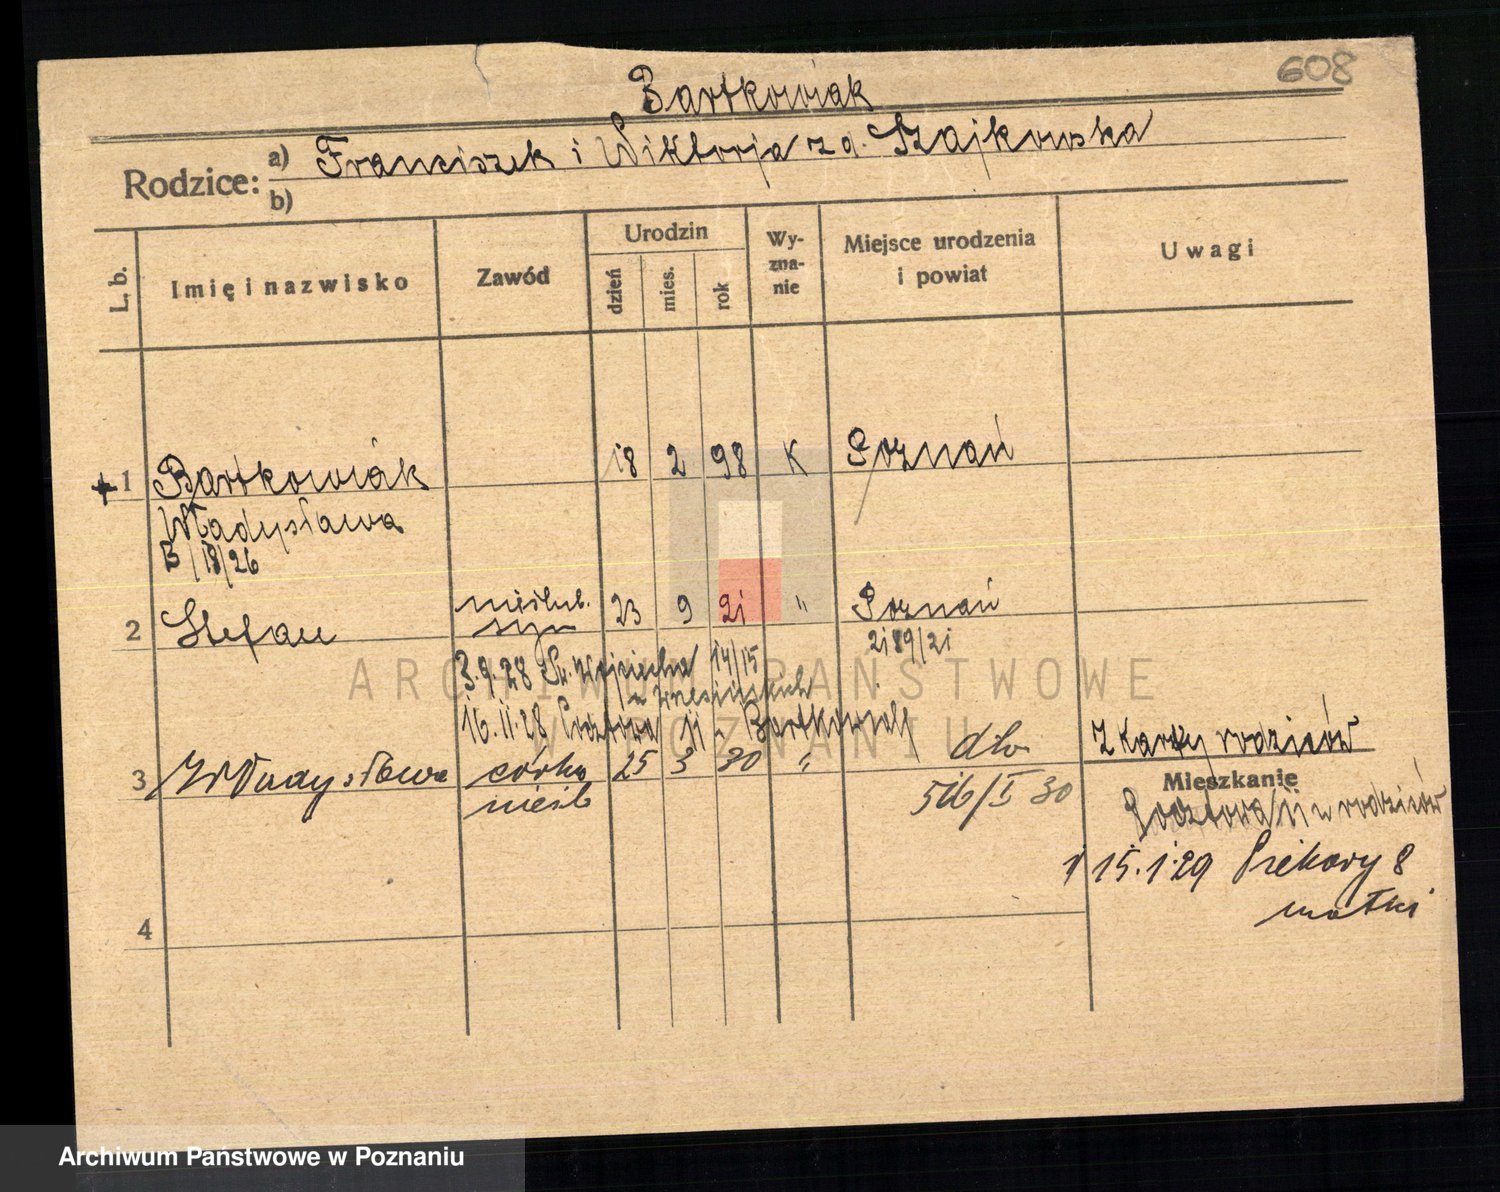 608
Bartkowiak
Rodzice: a) Franciszek i Wiktorja z d. Szajkowska
b)
L. b. Imię i nazwisko Zawód Urodzin dzień mies. rok Wyznanie Miejsce urodzenia i powiat Uwagi
+ 1 Bartkowiak 18 2 98 K Poznań
Władysława
B/18/26
2 Stefan nieślub. syn 23 9 21 " Poznań
2189/21
3.9.28 Św. Wojciecha 14/15
16.11.28 Pocztowa 11 Bartkowiak
Z karty rodziców
3 Władysława córka nieśl 25 3 30 " dto
516/I 30
Mieszkanie
Pocztowa 11 w rodziców
15.1.29 Piekary 8
matki
4
ARCHIWUM PAŃSTWOWE
W POZNANIU
Archiwum Państwowe w Poznaniu